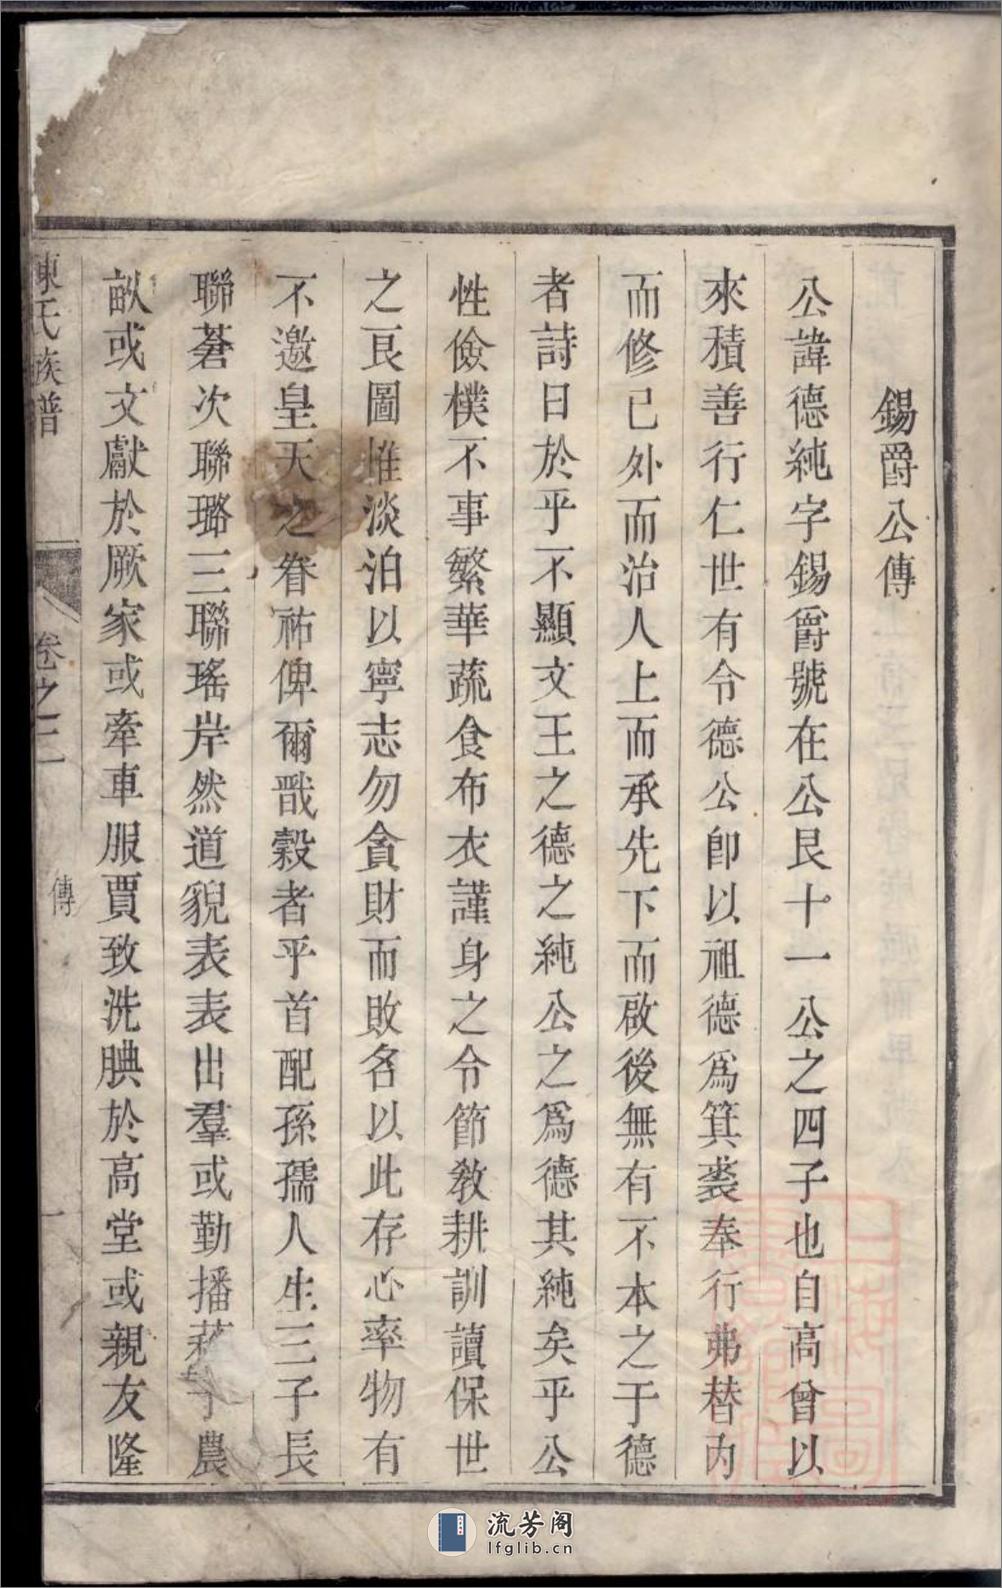 錫爵公傳
公諱德純字錫爵號在公艮十一公之四子也自高曾以
來積善行仁世有令德公卽以祖德爲箕裘奉行弗替內
而修己外而治人上而承先下而啟後無有不本之于德
者詩曰於乎不顯文王之德之純公之爲德其純矣乎公
性儉樸不事繁華蔬食布衣謹身之令節敎耕訓讀保世
之良圖惟淡泊以寧志勿貪財而敗名以此存心率物有
不邀皇天之眷祐俾爾戩穀者乎首配孫孺人生三子長
聯蒼次聯璐三聯瑤岸然道貌表表出羣或勤播於農
畝或文獻於厥家或牽車服賈致洗腆於高堂或親友隆
陳氏族譜
卷之二
傳
一
流芳阁
lfglib.cn